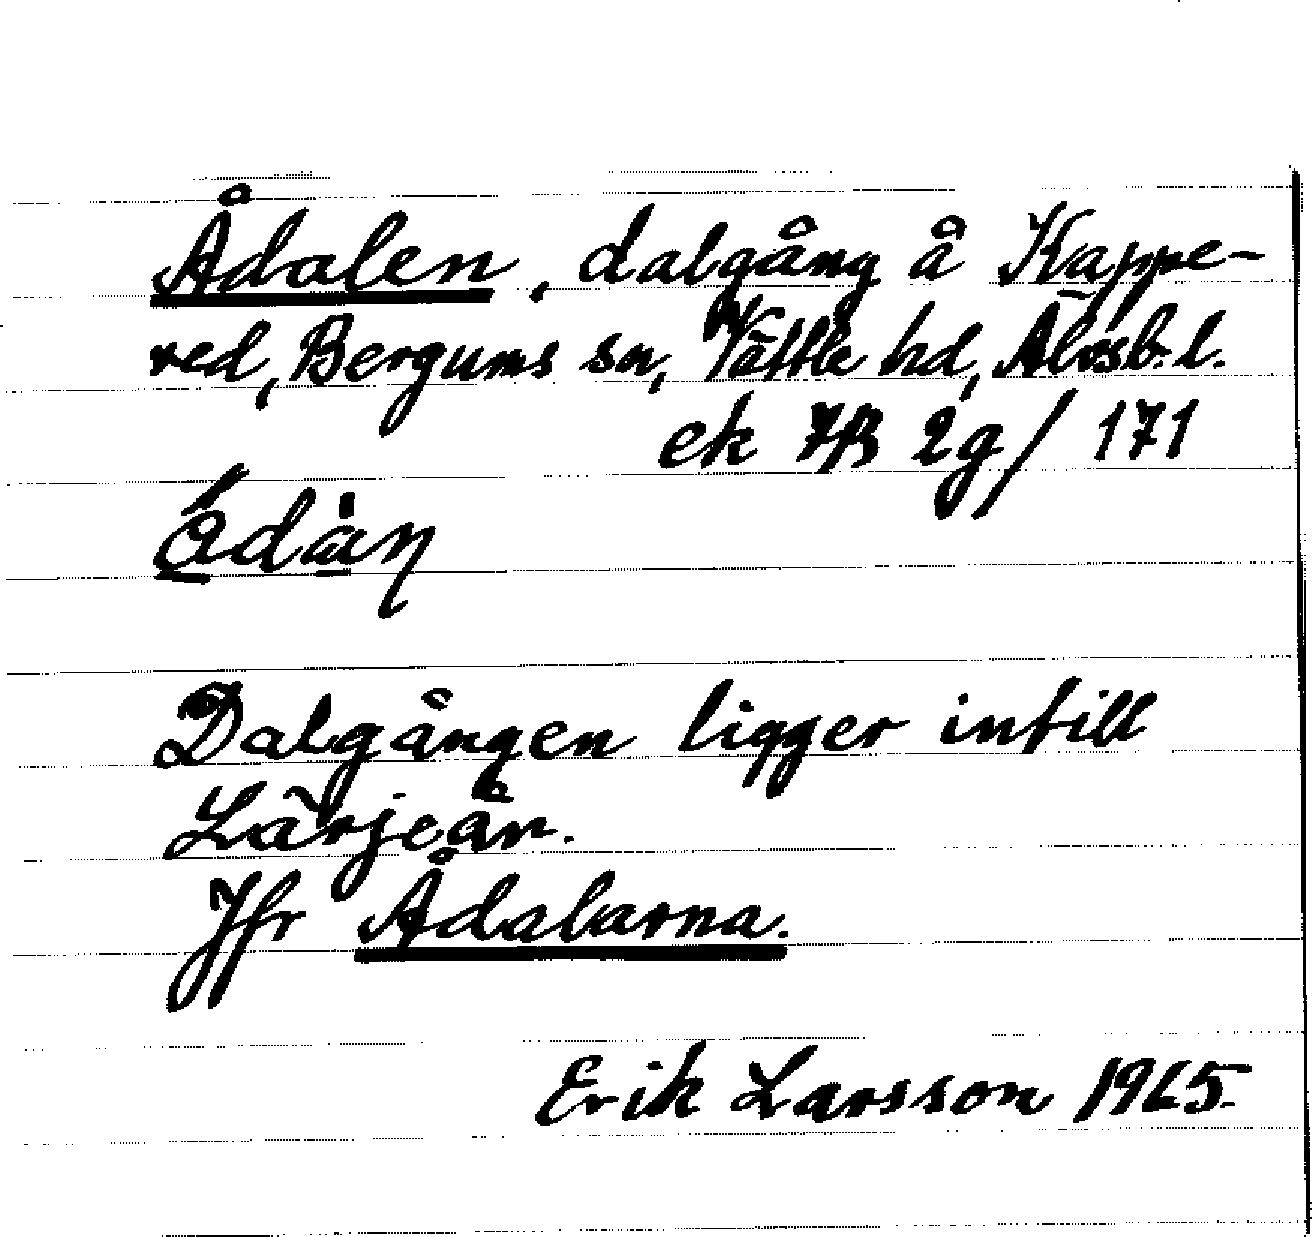 Ådalen, dalgång å Kappe-
red, Bergums sn, Vättle hd, Älvsb. l.
ek 7B 2g/171
Dalgången ligger intill
Lärjeån.
Jfr Ådalarna.
Erik Larsson 1965